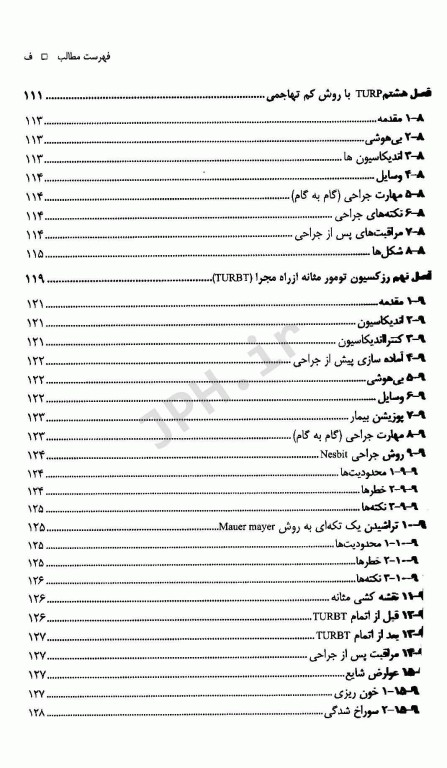 فهرست مطالب □ ف
فصل هشتم TURP با روش کم تهاجمی ........ ۱۱۱
۸-۱ مقدمه ........ ۱۱۳
۸-۲ بی‌هوشی ........ ۱۱۳
۸-۳ اندیکاسیون ها ........ ۱۱۳
۸-۴ وسایل ........ ۱۱۴
۸-۵ مهارت جراحی (گام به گام) ........ ۱۱۴
۸-۶ نکته‌های جراحی ........ ۱۱۴
۸-۷ مراقبت‌های پس از جراحی ........ ۱۱۴
۸-۸ شکل‌ها ........ ۱۱۵
فصل نهم رزکسیون تومور مثانه ازراه مجرا (TURBT) ........ ۱۱۹
۹-۱ مقدمه ........ ۱۲۱
۹-۲ اندیکاسیون ........ ۱۲۱
۹-۳ کنترااندیکاسیون ........ ۱۲۱
۹-۴ آماده سازی پیش از جراحی ........ ۱۲۲
۹-۵ بی‌هوشی ........ ۱۲۲
۹-۶ وسایل ........ ۱۲۲
۹-۷ پوزیشن بیمار ........ ۱۲۳
۹-۸ مهارت جراحی (گام به گام) ........ ۱۲۳
۹-۹ روش جراحی Nesbit ........ ۱۲۴
۹-۹-۱ محدودیت‌ها ........ ۱۲۴
۹-۹-۲ خطرها ........ ۱۲۴
۹-۹-۳ نکته‌ها ........ ۱۲۵
۹-۱۰ تراشیدن یک تکه‌ای به روش Mauer mayer ........ ۱۲۵
۹-۱۰-۱ محدودیت‌ها ........ ۱۲۵
۹-۱۰-۲ خطرها ........ ۱۲۵
۹-۱۰-۳ نکته‌ها ........ ۱۲۶
۹-۱۱ نقشه کشی مثانه ........ ۱۲۶
۹-۱۲ قبل از اتمام TURBT ........ ۱۲۶
۹-۱۳ بعد از اتمام TURBT ........ ۱۲۷
۹-۱۴ مراقبت پس از جراحی ........ ۱۲۷
۹-۱۵ عوارض شایع ........ ۱۲۷
۹-۱۵-۱ خون ریزی ........ ۱۲۷
۹-۱۵-۲ سوراخ شدگی ........ ۱۲۸
JPH.ir